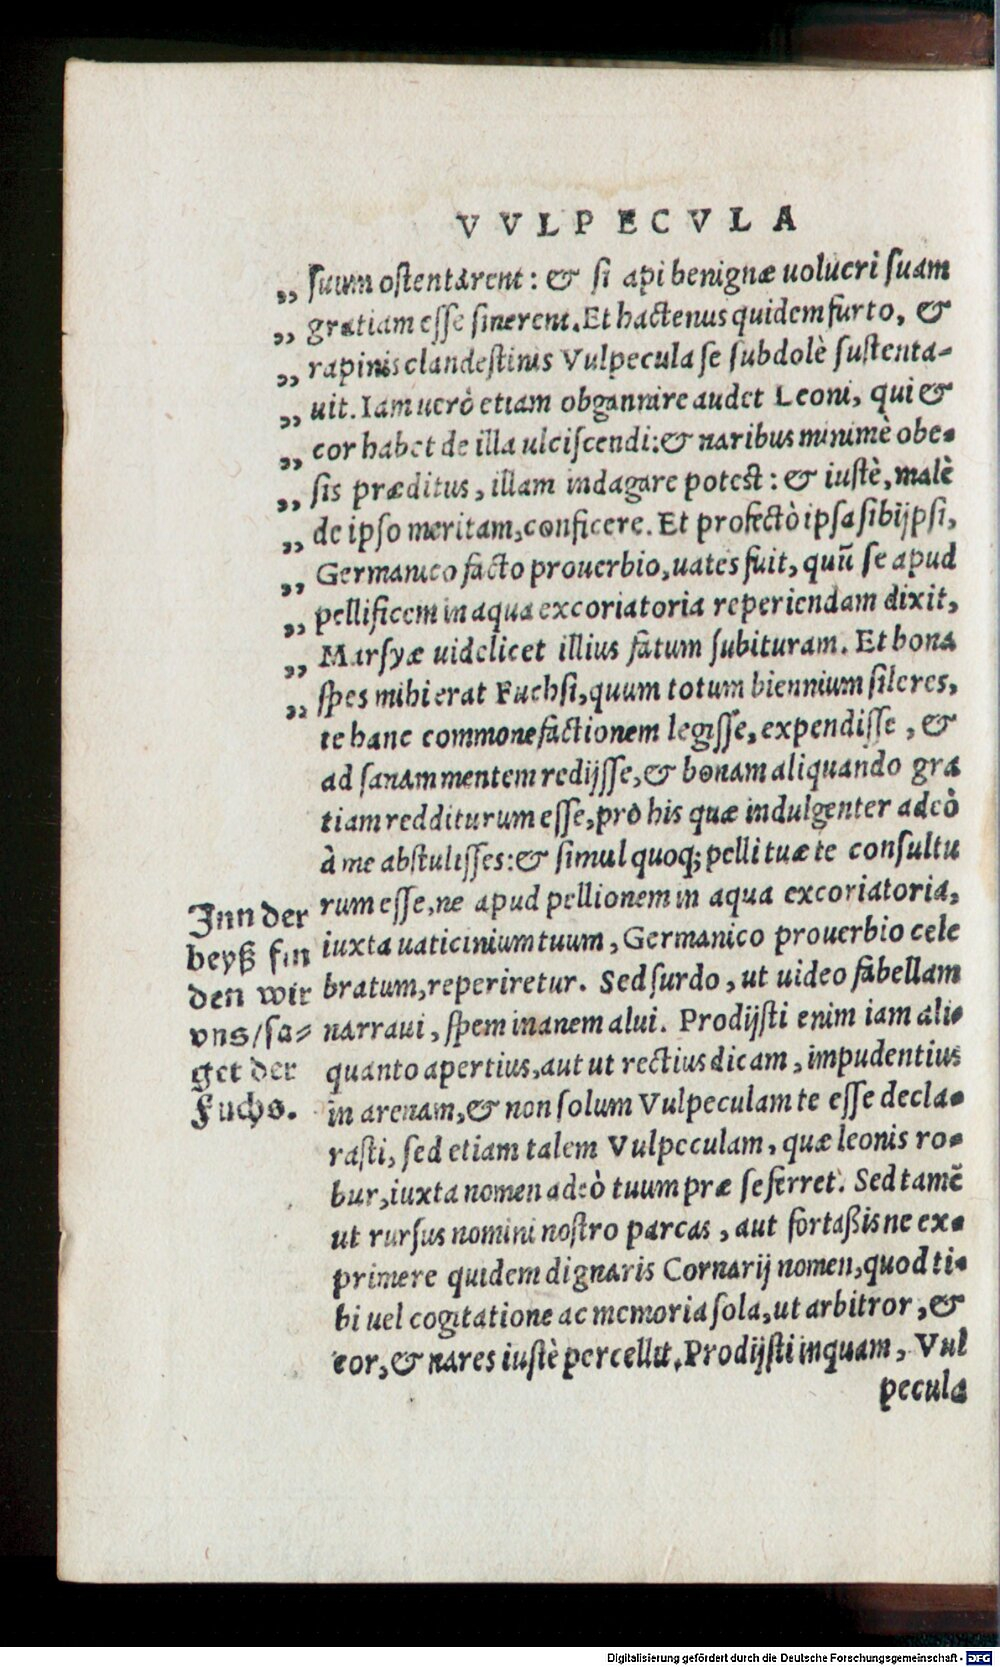 VVLPECVLA
„ ſuum oſtentarent: & ſi api benignæ uolucri ſuam
„ gratiam eſſe ſinerent. Et hactenus quidem furto, &
„ rapinis clandeſtinis Vulpecula ſe ſubdolè ſuſtenta-
„ uit. Iam uerò etiam obgannire audet Leoni, qui &
„ cor habet de illa ulciſcendi: & naribus minimè obe-
„ ſis præditus, illam indagare potest: & iuſtè, malè
„ de ipſo meritam, conficere. Et profectò ipſa ſibijpſi,
„ Germanico facto prouerbio, uates fuit, quū ſe apud
„ pellificem in aqua excoriatoria reperiendam dixit,
„ Marſyæ uidelicet illius fatum ſubituram. Et bona
„ ſpes mihi erat Fuchſi, quum totum biennium ſileres,
te hanc commonefactionem legiſſe, expendiſſe, &
ad ſanam mentem redijſſe, & bonam aliquando gra
tiam redditurum eſſe, pro his quæ indulgenter adeò
à me abſtuliſſes: & ſimul quoq; pelli tuæ te conſultu
rum eſſe, ne apud pellionem in aqua excoriatoria,
iuxta uaticinium tuum, Germanico prouerbio cele
bratum, reperiretur. Sed ſurdo, ut uideo fabellam
narraui, ſpem inanem alui. Prodijſti enim iam ali-
quanto apertius, aut ut rectius dicam, impudentius
in arenam, & non ſolum Vulpeculam te eſſe decla-
raſti, ſed etiam talem Vulpeculam, quæ leonis ro-
bur, iuxta nomen adeò tuum præ ſe ferret. Sed tamē
ut rurſus nomini noſtro parcas, aut fortaßis ne ex-
primere quidem dignaris Cornarij nomen, quod ti-
bi uel cogitatione ac memoria ſola, ut arbitror, &
cor, & nares iuſtè percellit. Prodijſti inquam, Vul
pecula
Inn der
beyß fin
den wir
vns/ſa-
get der
Fuchs.
Digitalisierung gefördert durch die Deutsche Forschungsgemeinschaft - DFG